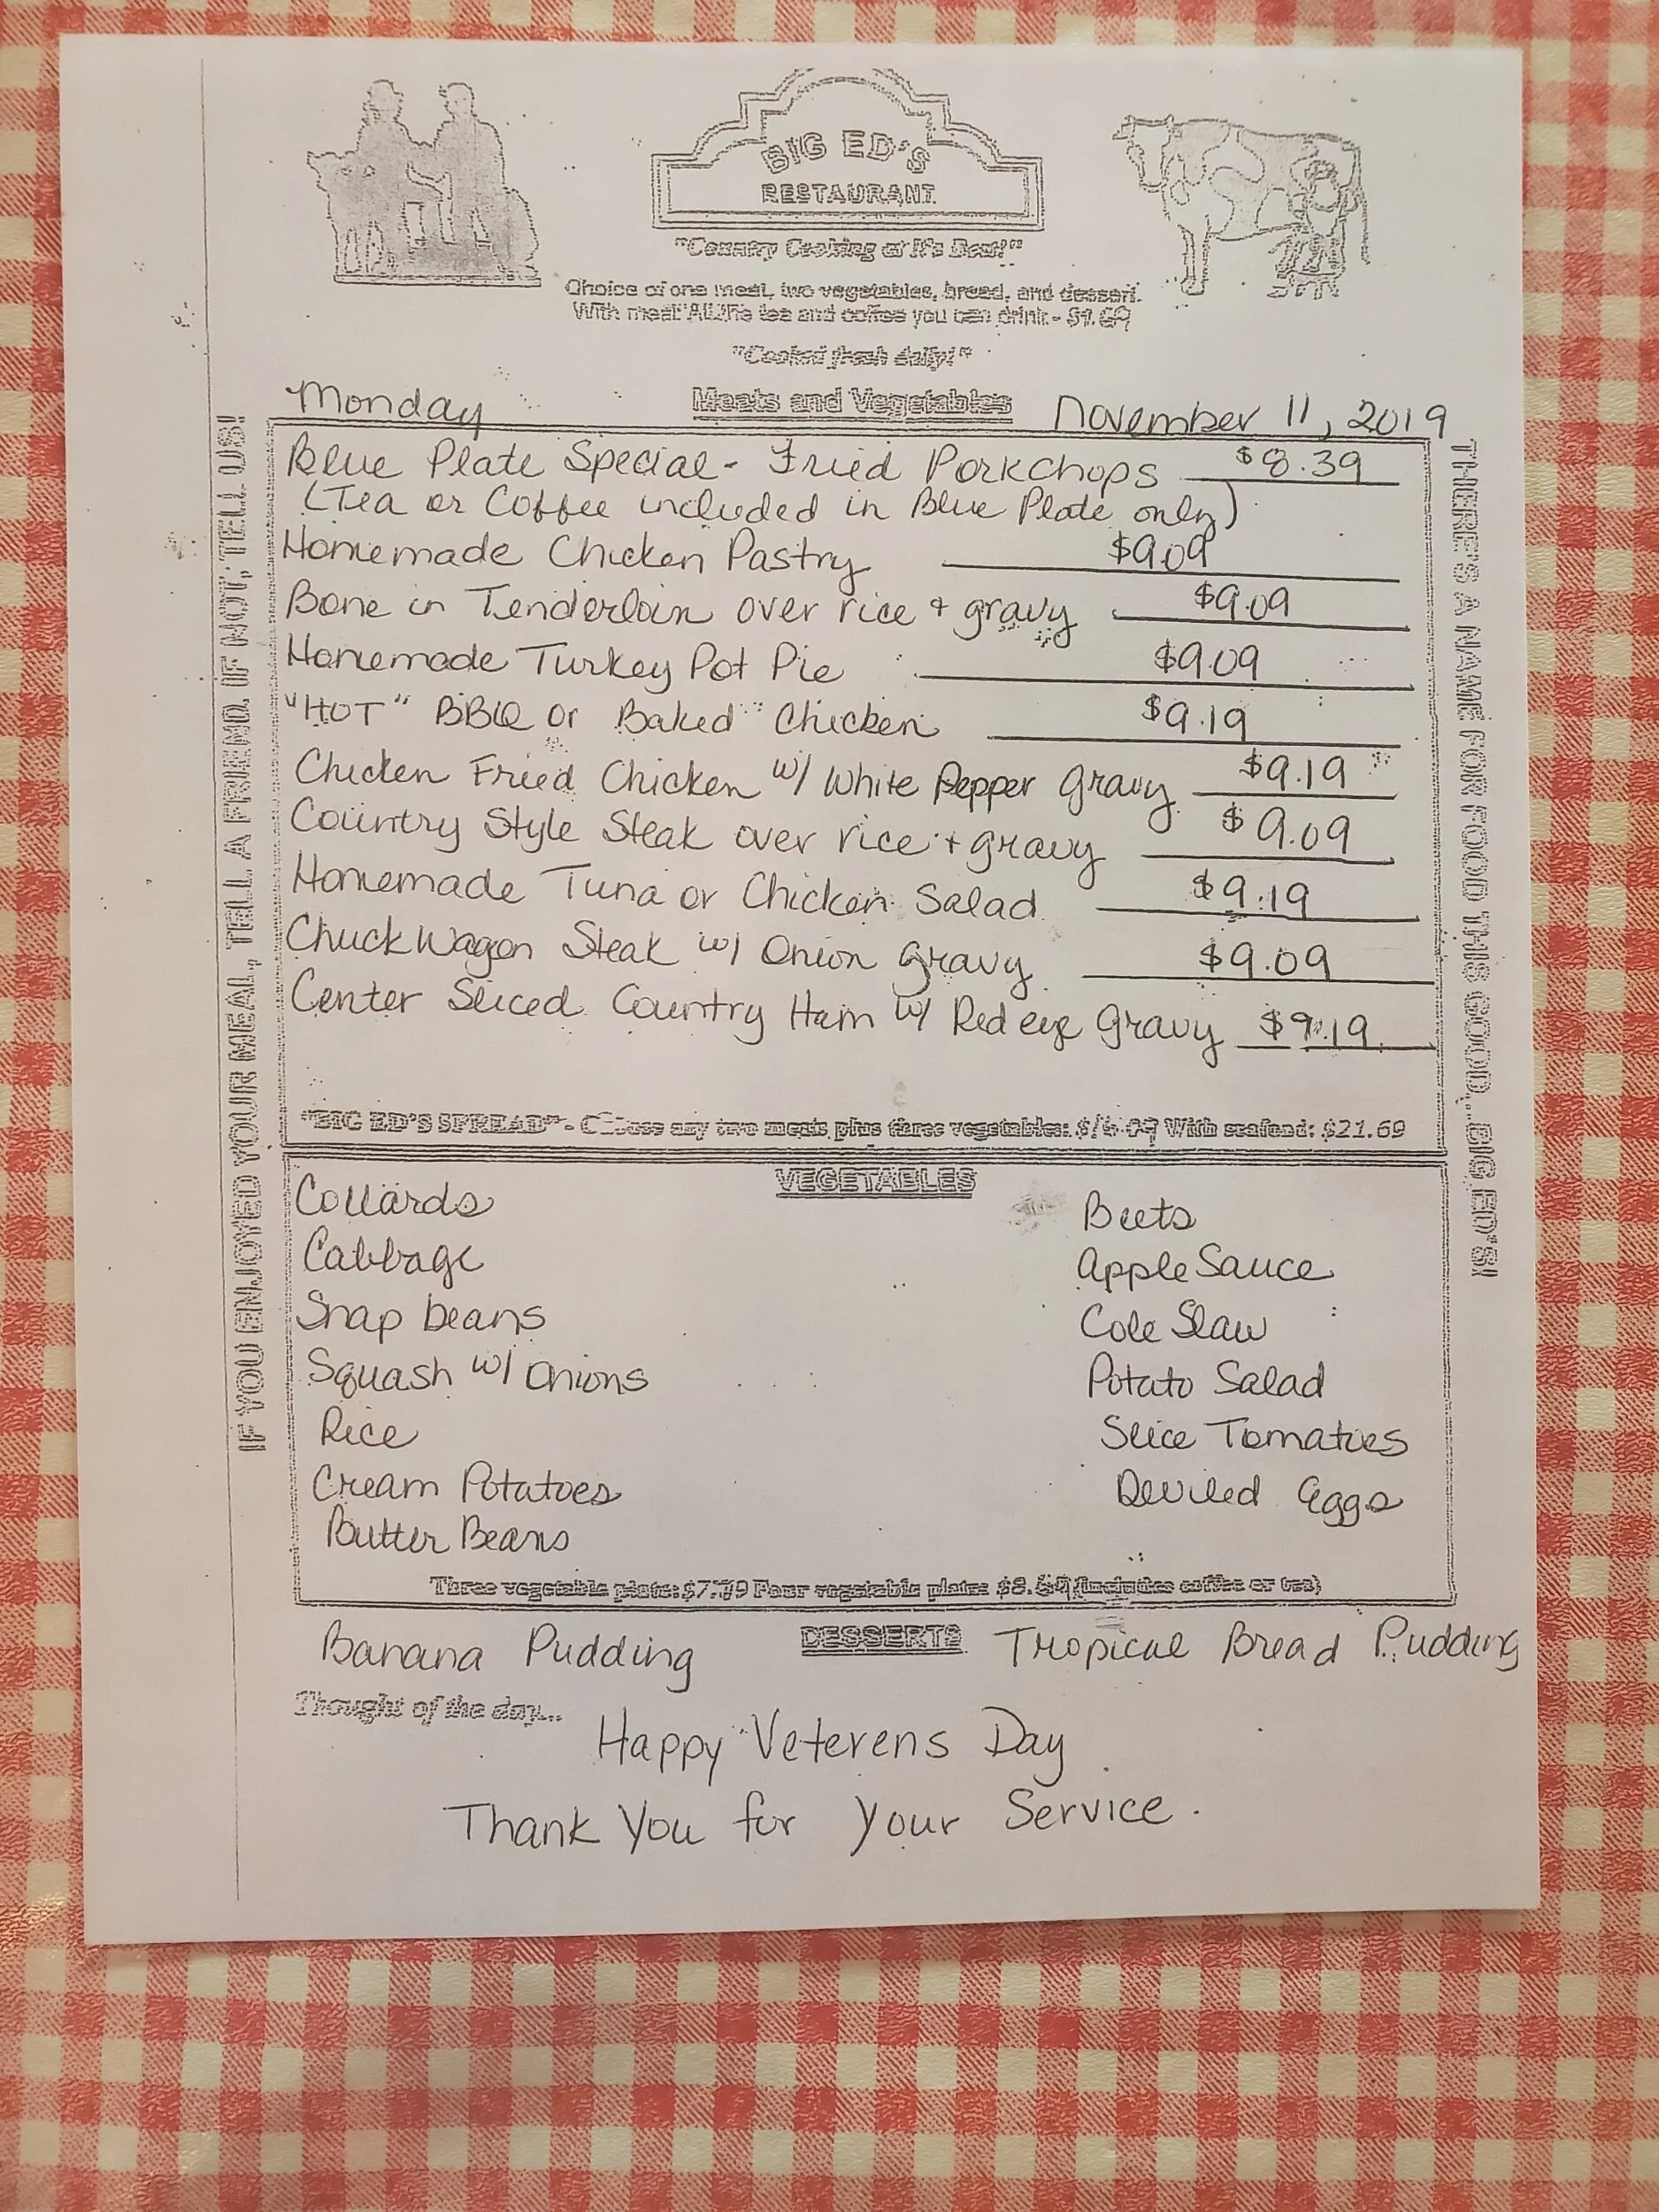 BIG ED'S
RESTAURANT
"Country Cooking at It's Best!"
Choice of one meat, two vegetables, bread, and dessert.
With meal: All the tea and coffee you can drink - $1.69
"Cooked fresh daily!"
Monday
Meats and Vegetables
November 11, 2019
Blue Plate Special - Fried Porkchops $8.39
(Tea or Coffee included in Blue Plate only)
Homemade Chicken Pastry $9.09
Bone in Tenderloin over rice + gravy $9.09
Homemade Turkey Pot Pie $9.09
"HOT" BBQ or Baked Chicken $9.19
Chicken Fried Chicken w/ White Pepper Gravy $9.19
Country Style Steak over rice + gravy $9.09
Homemade Tuna or Chicken Salad $9.19
Chuck Wagon Steak w/ Onion Gravy $9.09
Center Sliced Country Ham w/ Red eye Gravy $9.19
"BIG ED'S SPREAD" - Choose any two meats plus three vegetables: With seafood: $21.69
VEGETABLES
Collards
Cabbage
Snap beans
Squash w/ Onions
Rice
Cream Potatoes
Butter Beans
Beets
Apple Sauce
Cole Slaw
Potato Salad
Slice Tomatoes
Deviled Eggs
Three vegetable plate: Four vegetable plate: (includes coffee or tea)
DESSERTS
Banana Pudding
Tropical Bread Pudding
Thought of the day...
Happy Veterens Day
Thank You for Your Service.
IF YOU ENJOYED YOUR MEAL, TELL A FRIEND. IF NOT, TELL US!
THERE'S A NAME FOR FOOD THIS GOOD... BIG ED'S!